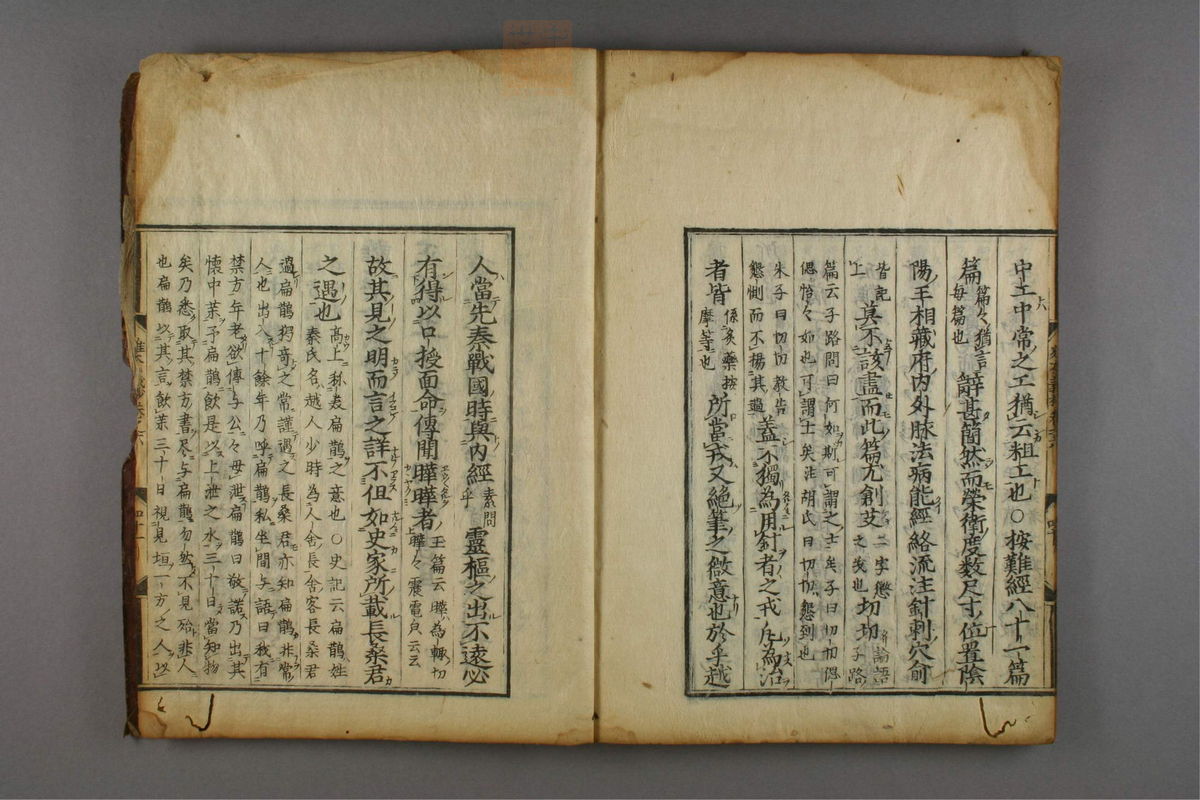 中工中常之工猶云粗工也○按難經八十一篇
篇篇々猶言每篇也辭甚簡然而榮衛度数尺寸位置陰
陽王相藏府内外脉法病能經絡流注針刺穴俞
皆記上莫不該盡而此篇尤創艾二字懲之義也切切論語子路
篇云子路問曰何如斯可謂之士矣子曰切切偲
偲怡々如也可謂士矣注胡氏曰切切懇到也
朱子曰切切教告懇惻而不揚其過蓋不獨為用針者之戒凡為治
者皆係灸藥按摩等也所當戒又絕筆之微意也於乎越
人當先秦戰國時與内經素問靈樞之出不遠必
有得以口授面命傳聞曄曄者玉篇云曄為輒切曄々震電皃云云
故其見之明而言之詳不但如史家所載長桑君
之遇也高上称表扁鵲之意也○史記云扁鵲姓秦氏名越人少時為人舍長舍客長桑君
過扁鵲独奇之常謹遇之長桑君亦知扁鵲非常
人也出入十餘年乃呼扁鵲私坐間与語曰我有
禁方年老欲傳与公々毋泄扁鵲曰敬諾乃出其
懷中藥予扁鵲飲是以上池之水三十日當知物
矣乃悉取其禁方書尽与扁鵲忽然不見殆非人
也扁鵲以其言飲藥三十日視見垣一方之人以